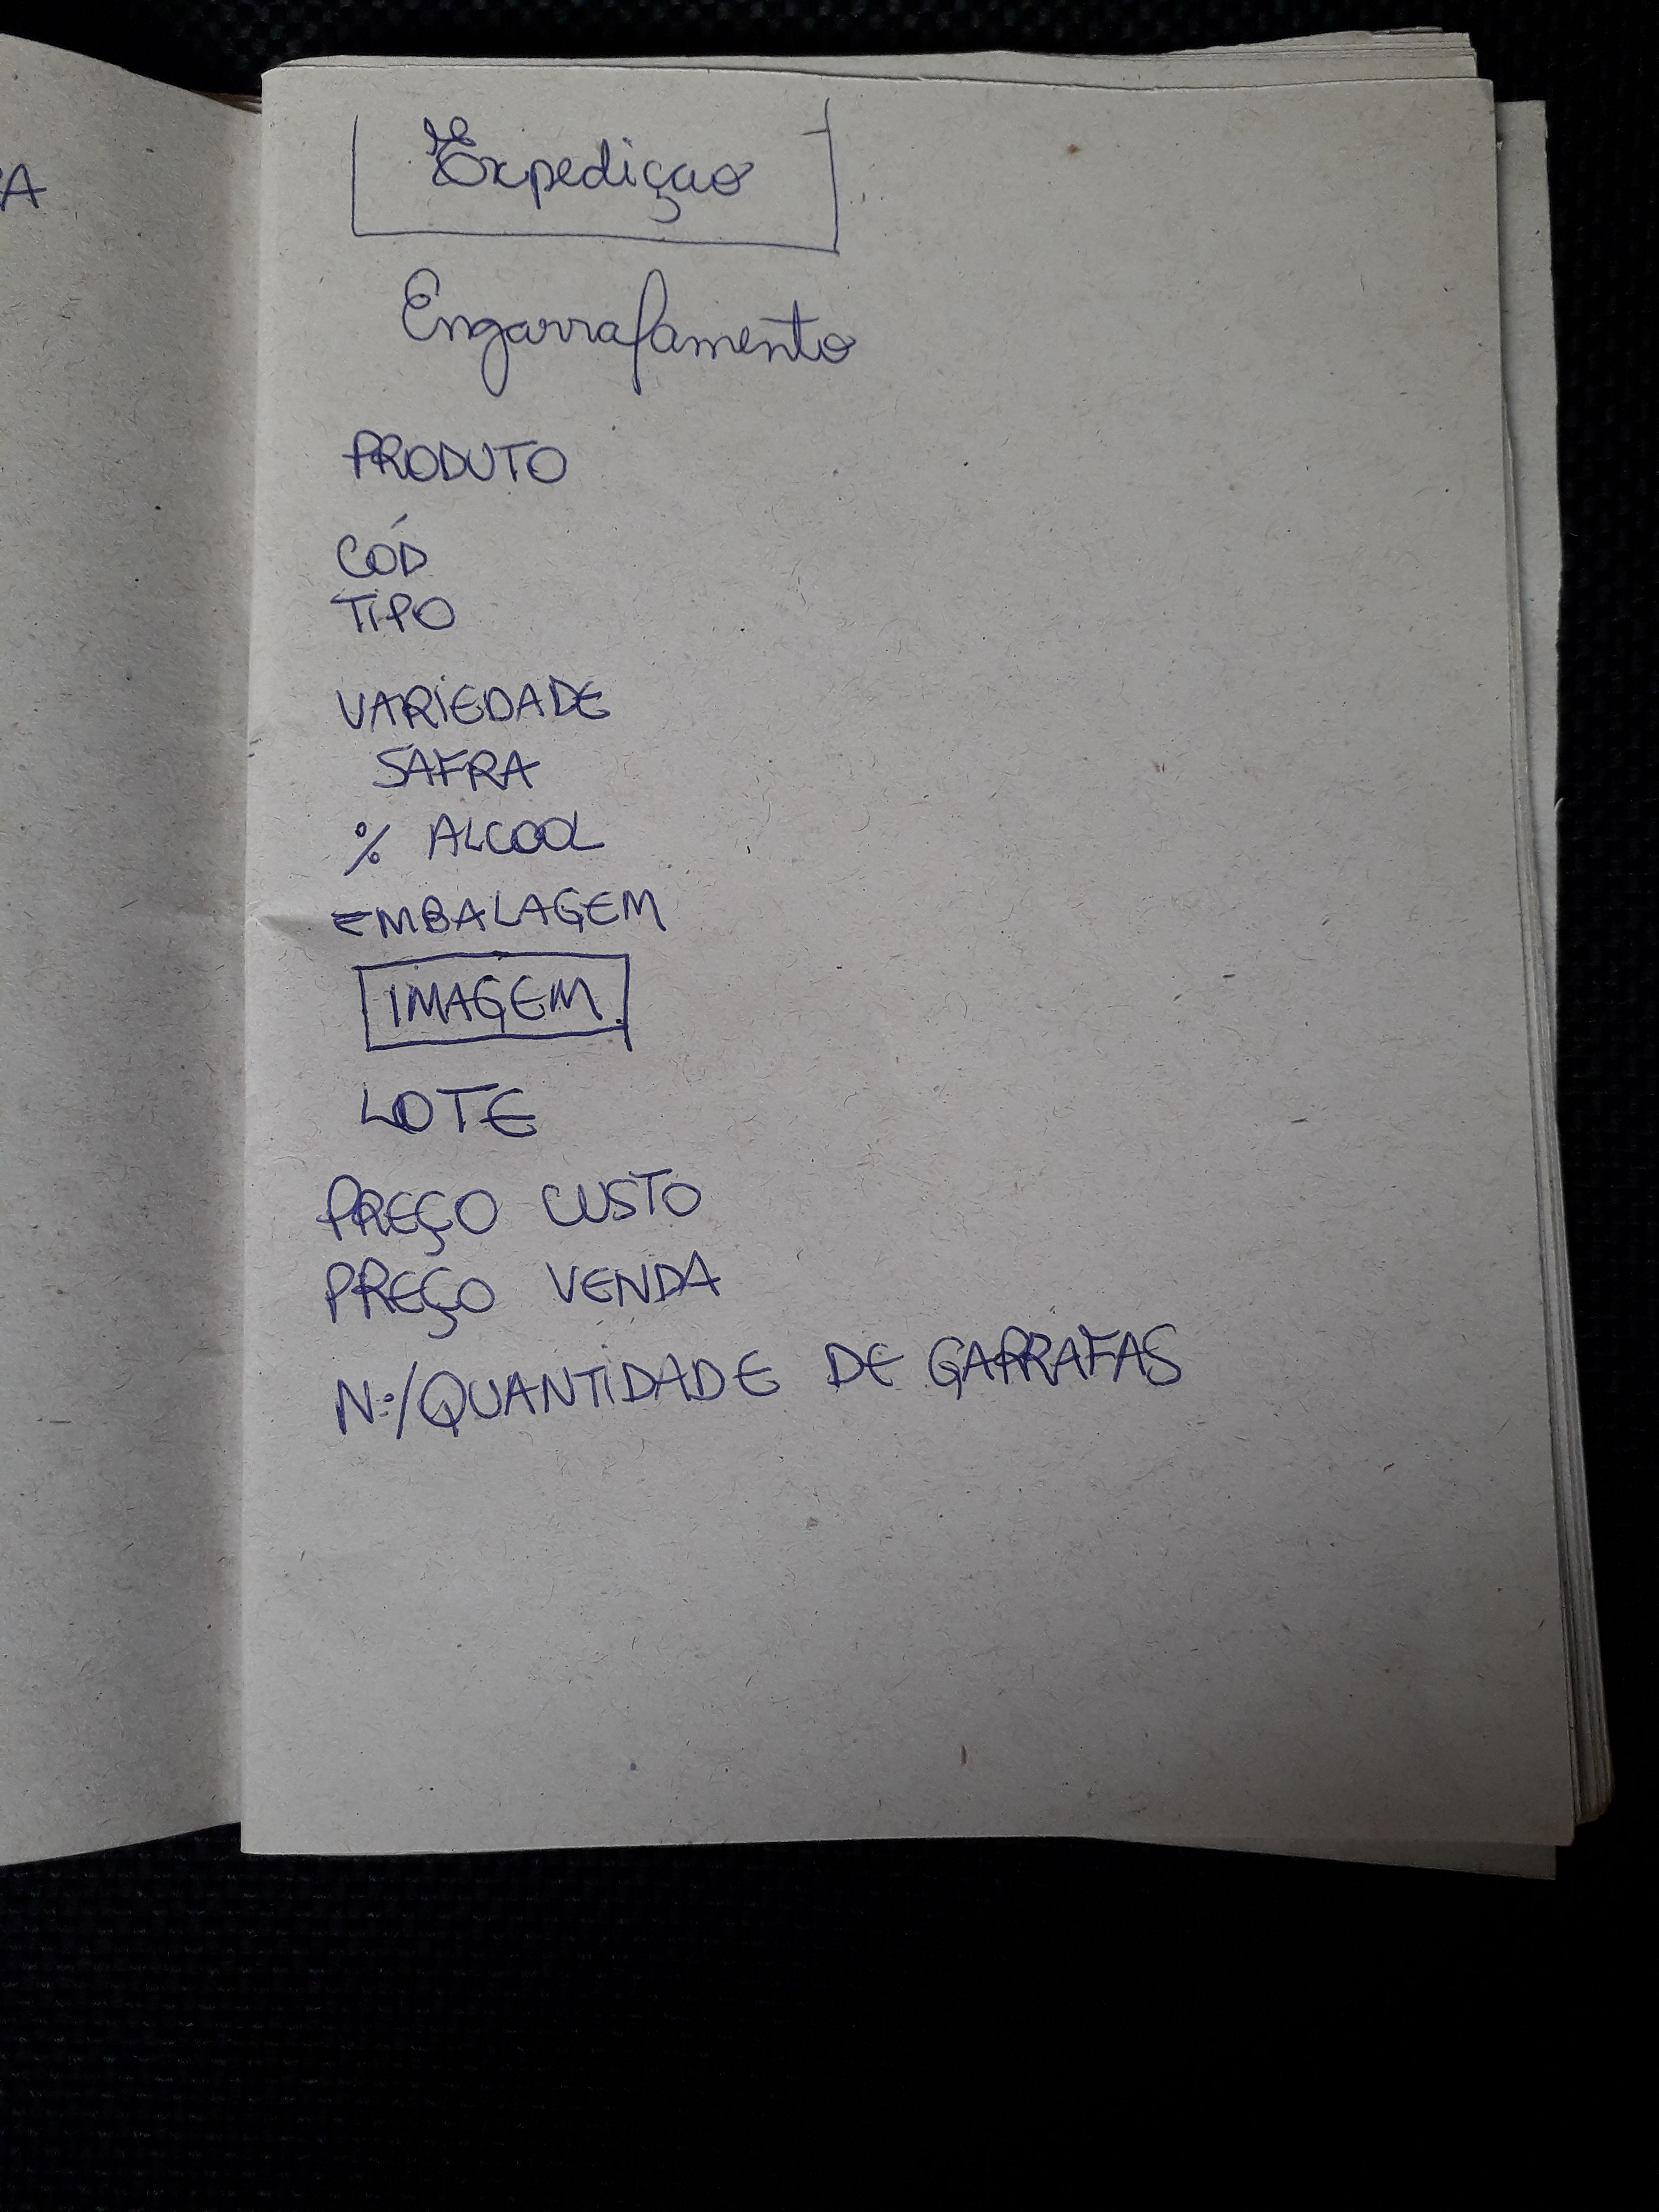 Expediçao
Engarrafamento
PRODUTO
CÓD
TIPO
VARIEDADE
SAFRA
% ALCOOL
EMBALAGEM
IMAGEM
LOTE
PREÇO CUSTO
PREÇO VENDA
Nº/QUANTIDADE DE GARRAFAS